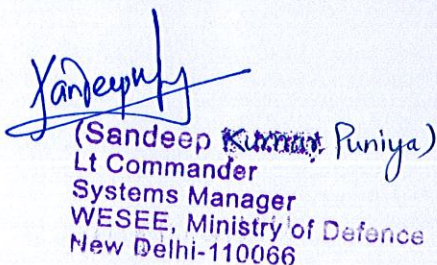 (Sandeep Kumar Puniya)
Lt Commander
Systems Manager
WESEE, Ministry of Defence
New Delhi-110066